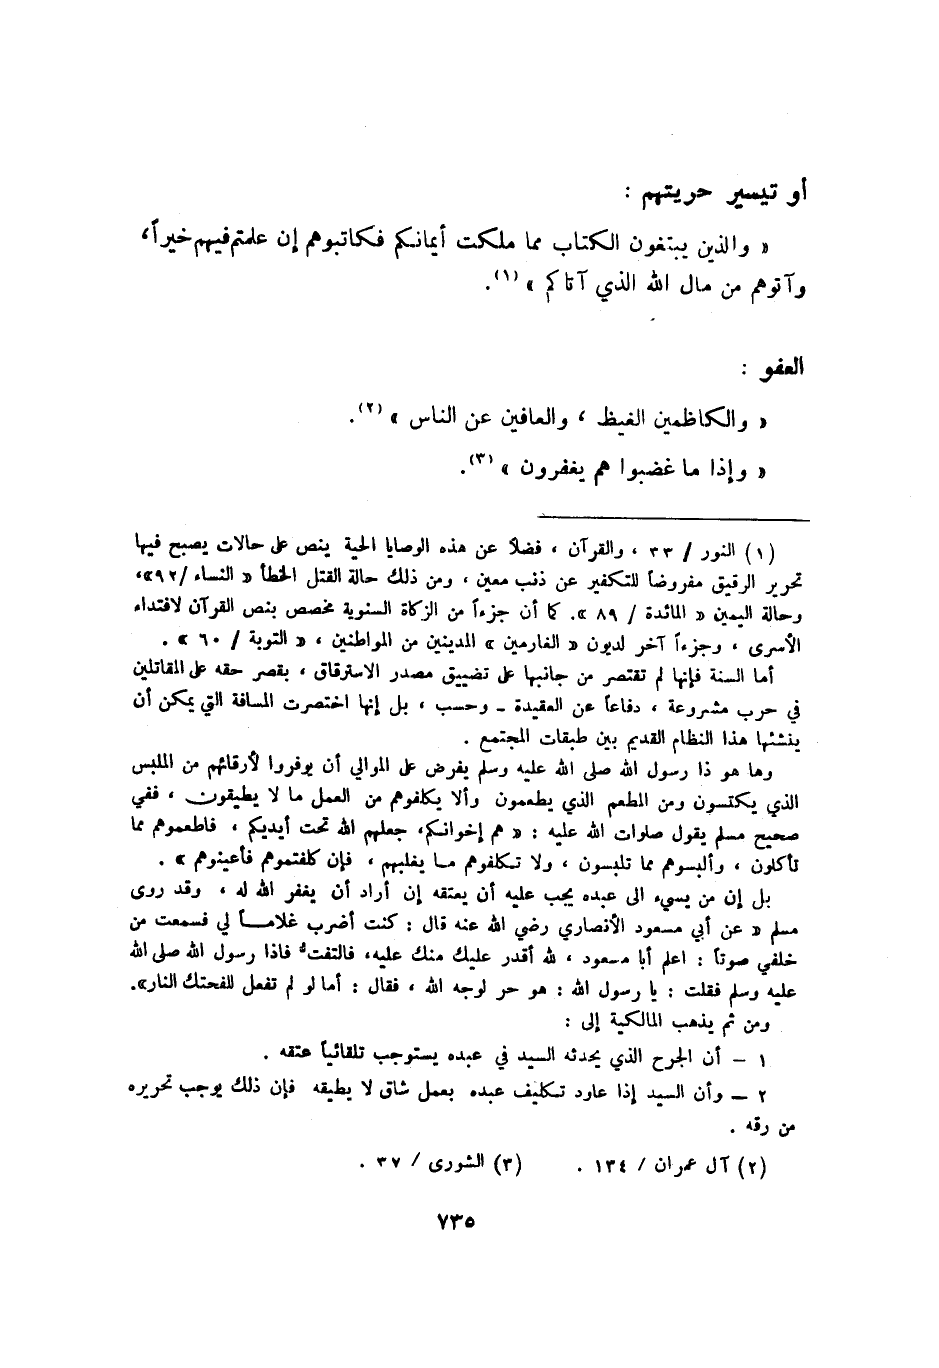 أو تيسير حريتهم :
« والذين يبتغون الكتاب مما ملكت أيمانكم فكاتبوهم إن علمتم فيهم خيراً،
وآتوهم من مال الله الذي آتاكم » (١).
العفو :
« والكاظمين الغيظ ، والعافين عن الناس » (٢).
« وإذا ما غضبوا هم يغفرون » (٣).
(١) النور / ٣٣ ، والقرآن ، فضلاً عن هذه الوصايا الحية ينص على حالات يصبح فيها
تحرير الرقيق مفروضاً للتكفير عن ذنب معين ، ومن ذلك حالة القتل الخطأ « النساء /٩٢»،
وحالة اليمين « المائدة / ٨٩ ». كما أن جزءاً من الزكاة السنوية مخصص بنص القرآن لافتداء
الأسرى ، وجزءاً آخر لديون « الغارمين » المدينين من المواطنين ، « التوبة / ٦٠ » .
أما السنة فإنها لم تقتصر من جانبها على تضييق مصدر الاسترقاق ، بقصر حقه على المقاتلين
في حرب مشروعة ، دفاعاً عن العقيدة ـ وحسب ، بل إنها اختصرت المسافة التي يمكن أن
ينشئها هذا النظام القديم بين طبقات المجتمع .
وها هو ذا رسول الله صلى الله عليه وسلم يفرض على الموالي أن يوفروا لأرقائهم من الملبس
الذي يكتسون ومن المطعم الذي يطعمون وألا يكلفوهم من العمل ما لا يطيقون ، ففي
صحيح مسلم يقول صلوات الله عليه : « هم إخوانكم، جعلهم الله تحت أيديكم ، فاطعموهم مما
تأكلون ، وألبسوهم مما تلبسون ، ولا تكلفوهم ما يغلبهم ، فإن كلفتموهم فأعينوهم » .
بل إن من يسيء الى عبده يجب عليه أن يعتقه إن أراد أن يغفر الله له ، وقد روى
مسلم « عن أبي مسعود الأنصاري رضي الله عنه قال : كنت أضرب غلاماً لي فسمعت من
خلفي صوتاً : اعلم أبا مسعود ، لله أقدر عليك منك عليه، فالتفت فاذا رسول الله صلى الله
عليه وسلم فقلت : يا رسول الله : هو حر لوجه الله ، فقال : أما لو لم تفعل للفحتك النار».
ومن ثم يذهب المالكية إلى :
١ – أن الجرح الذي يحدثه السيد في عبده يستوجب تلقائياً عتقه .
٢ – وأن السيد إذا عاود تكليف عبده بعمل شاق لا يطيقه فإن ذلك يوجب تحريره
من رقه .
(٢) آل عمران / ١٣٤ . (٣) الشورى / ٣٧ .
٧٣٥